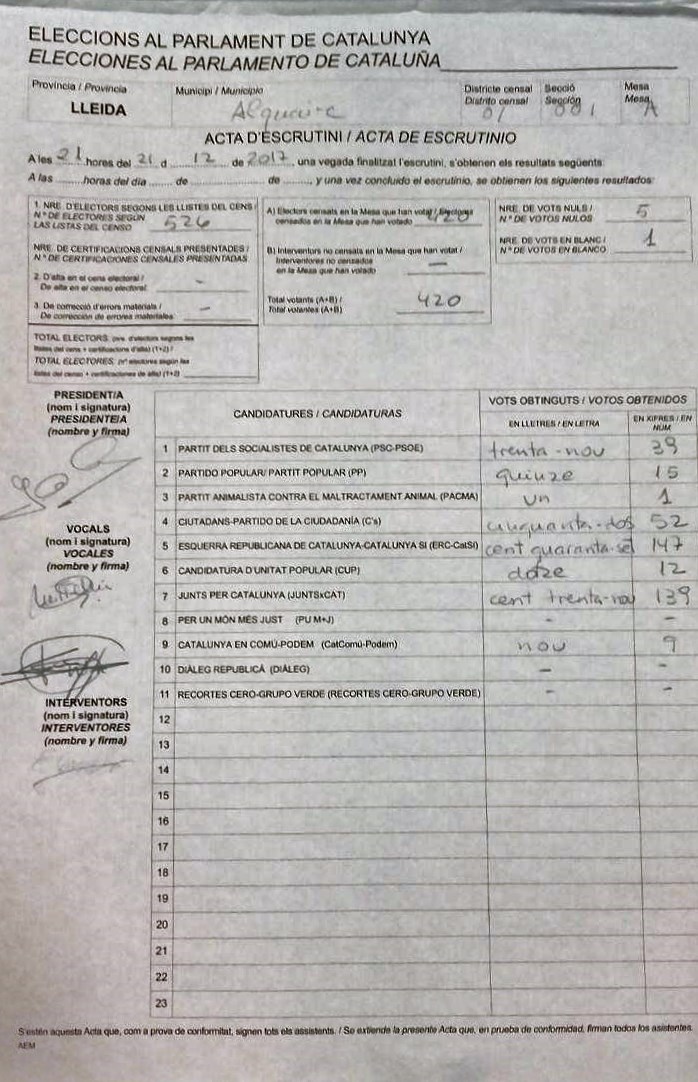 ELECCIONS AL PARLAMENT DE CATALUNYA
ELECCIONES AL PARLAMENTO DE CATALUÑA
Província / Provincia
LLEIDA
Municipi / Municipio
Alguaire
Districte censal
Distrito censal
01
Secció
Sección
001
Mesa
Mesa
A
ACTA D'ESCRUTINI / ACTA DE ESCRUTINIO
A les 21 hores del 21 d 12 de 2017, una vegada finalitzat l'escrutini, s'obtenen els resultats següents:
A las ........horas del día ...... de ................ de ........, y una vez concluido el escrutinio, se obtienen los siguientes resultados:
1. NRE. D'ELECTORS SEGONS LES LLISTES DEL CENS /
N° DE ELECTORES SEGÚN
LAS LISTAS DEL CENSO 526
NRE. DE CERTIFICACIONS CENSALS PRESENTADES /
N° DE CERTIFICACIONES CENSALES PRESENTADAS
2. D'alta en el cens electoral /
De alta en el censo electoral: -
3. De correcció d'errors materials /
De corrección de errores materiales: -
TOTAL ELECTORS: (nre. d'electors segons les
llistes del cens + certificacions d'alta) (1+2) /
TOTAL ELECTORES: (n° electores según las
listas del censo + certificaciones de alta) (1+2)
A) Electors censats en la Mesa que han votat / Electores
censados en la Mesa que han votado 420
B) Interventors no censats en la Mesa que han votat /
Interventores no censados
en la Mesa que han votado —
Total votants (A+B) /
Total votantes (A+B) 420
NRE. DE VOTS NULS /
N° DE VOTOS NULOS 5
NRE. DE VOTS EN BLANC /
N° DE VOTOS EN BLANCO 1
PRESIDENT/A
(nom i signatura)
PRESIDENTE/A
(nombre y firma)
VOCALS
(nom i signatura)
VOCALES
(nombre y firma)
INTERVENTORS
(nom i signatura)
INTERVENTORES
(nombre y firma)
CANDIDATURES / CANDIDATURAS
VOTS OBTINGUTS / VOTOS OBTENIDOS
EN LLETRES / EN LETRA
EN XIFRES / EN NÚM
1 PARTIT DELS SOCIALISTES DE CATALUNYA (PSC-PSOE) trenta-nou 39
2 PARTIDO POPULAR/ PARTIT POPULAR (PP) quinze 15
3 PARTIT ANIMALISTA CONTRA EL MALTRACTAMENT ANIMAL (PACMA) un 1
4 CIUTADANS-PARTIDO DE LA CIUDADANÍA (C's) cinquanta-dos 52
5 ESQUERRA REPUBLICANA DE CATALUNYA-CATALUNYA SÍ (ERC-CatSí) cent quaranta-set 147
6 CANDIDATURA D'UNITAT POPULAR (CUP) dotze 12
7 JUNTS PER CATALUNYA (JUNTSxCAT) cent trenta-nou 139
8 PER UN MÓN MÉS JUST (PU M+J) - -
9 CATALUNYA EN COMÚ-PODEM (CatComú-Podem) nou 9
10 DIÀLEG REPUBLICÀ (DIÀLEG) - -
11 RECORTES CERO-GRUPO VERDE (RECORTES CERO-GRUPO VERDE) - -
12
13
14
15
16
17
18
19
20
21
22
23
S'estén aquesta Acta que, com a prova de conformitat, signen tots els assistents. / Se extiende la presente Acta que, en prueba de conformidad, firman todos los asistentes.
AEM